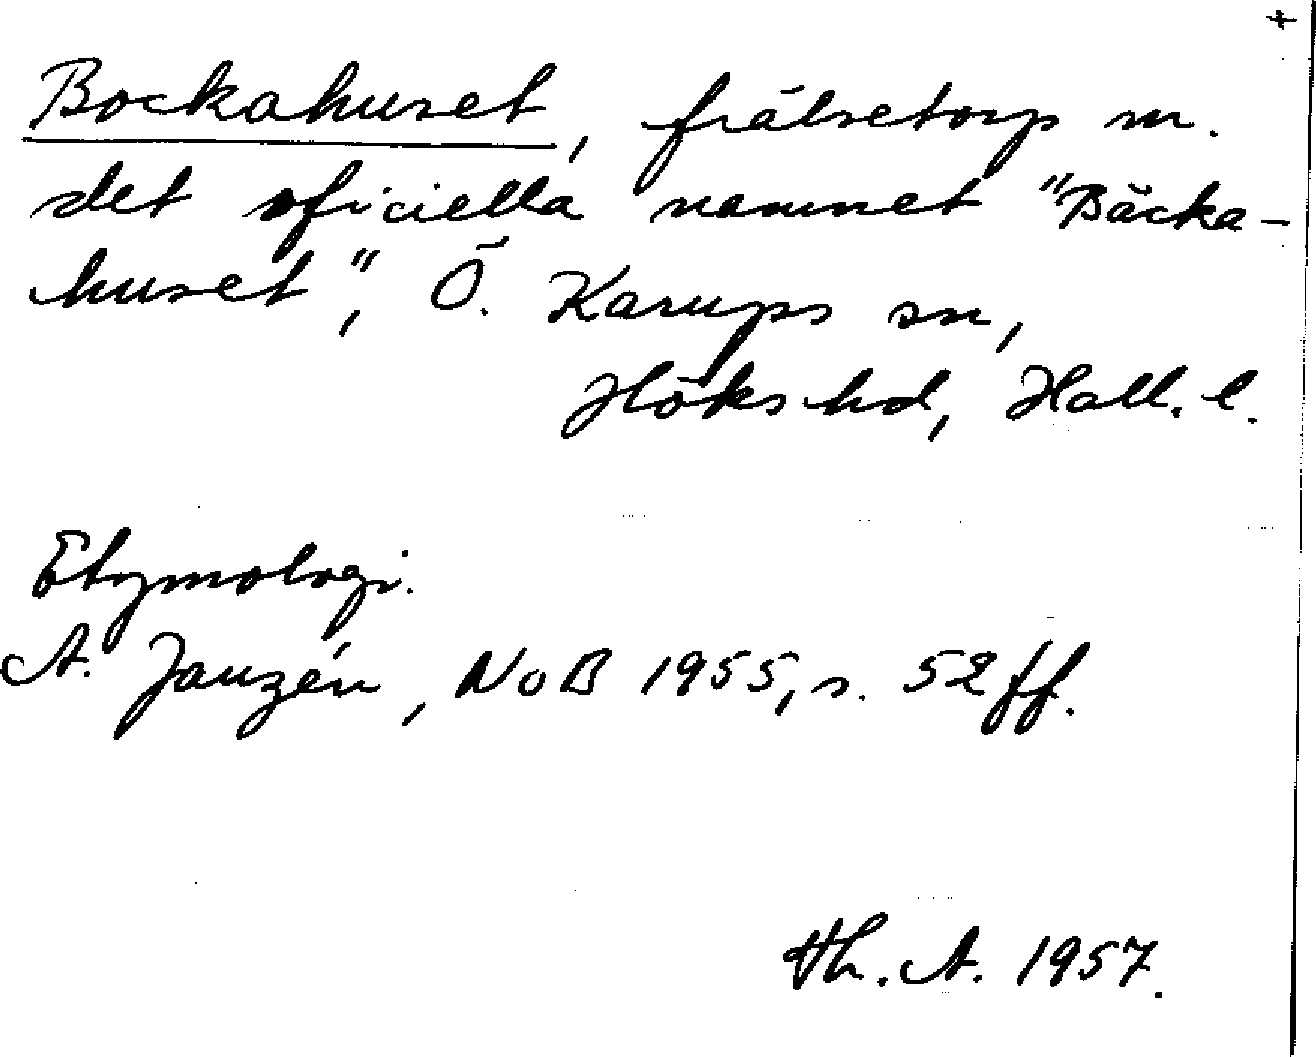 +
Bockahuset, frälsetorp m.
det oficiella namnet "Bäcka-
huset", Ö. Karups sn,
Höks hd, Hall. l.
Etymologi.
A. Janzén, NoB 1955, s. 52 ff.
Th. A. 1957.